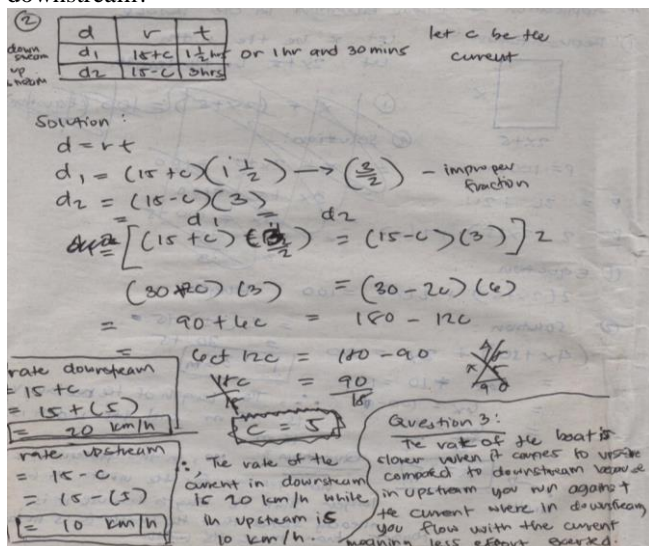 downstream?
②
d v t
down stream d1 15+c 1 1/2 hrs or 1 hr and 30 mins
up stream d2 15-c 3hrs
let c be the
current
Solution :
d = r t
d1 = (15 + c)(1 1/2) → (3/2) - improper
fraction
d2 = (15-c)(3)
= d1 = d2
= [(15 + c) (3/2) = (15-c)(3)] 2
(30+2c)(3) = (30-2c)(6)
= 90 + 6c = 180 - 12c
= 6c+ 12c = 180 - 90
18c = 90
18 18
c = 5
rate downstream
= 15 + c
= 15 + (5)
= 20 km/h
rate upstream
= 15 - c
= 15 - (5)
= 10 km/h
∴ The rate of the
current in downstream
is 20 km/h while
in upstream is
10 km/h.
Question 3:
Te rate of the boat is
slower when it comes to
compared to downstream because
in upstream you run against
the current where in downstream
you flow with the current
meaning less effort exerted.